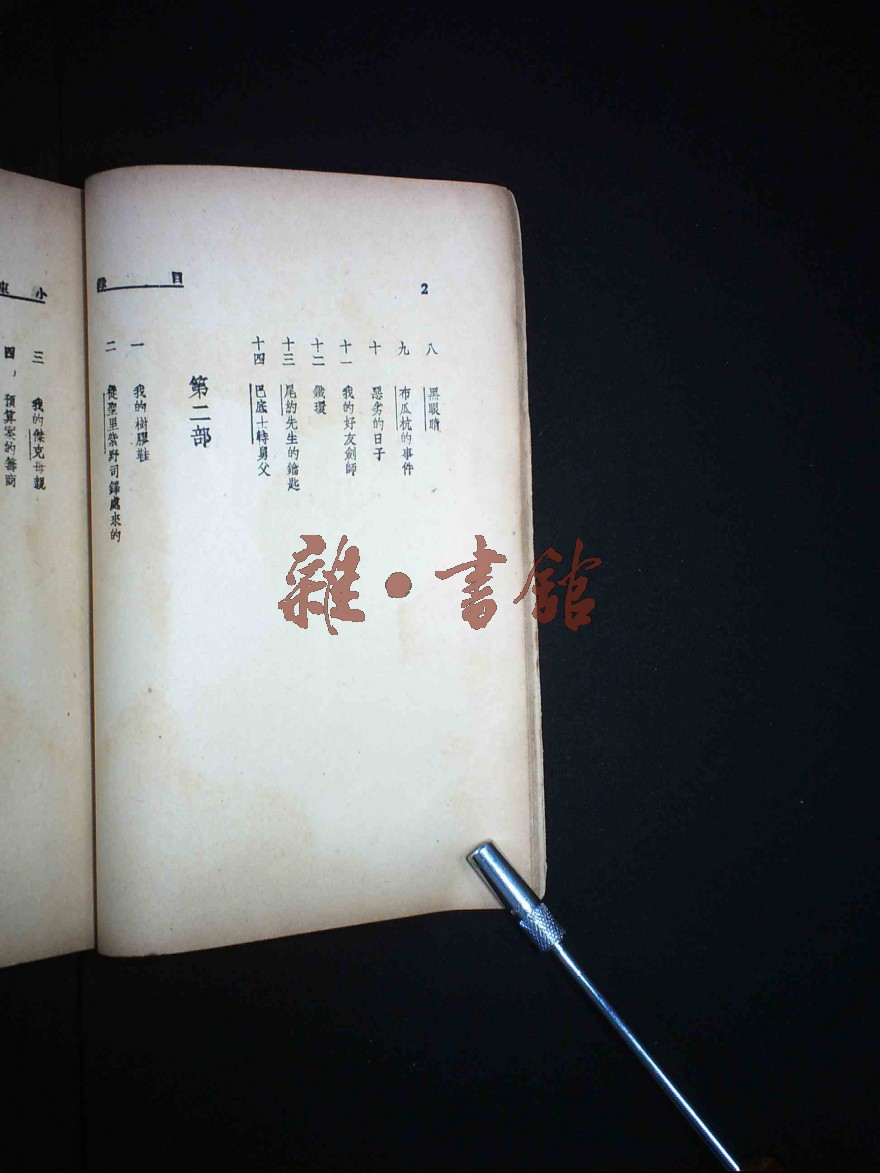 2
目錄
八 黑眼睛
九 布瓜杭的事件
十 惡劣的日子
十一 我的好友劍師
十二 鐵環
十三 尾約先生的鑰匙
十四 巴底士特舅父
第二部
一 我的樹膠鞋
二 從聖里柴野司鐸處來的
小東
三 我的傑克母親
四 預算案的籌商
雜·書館